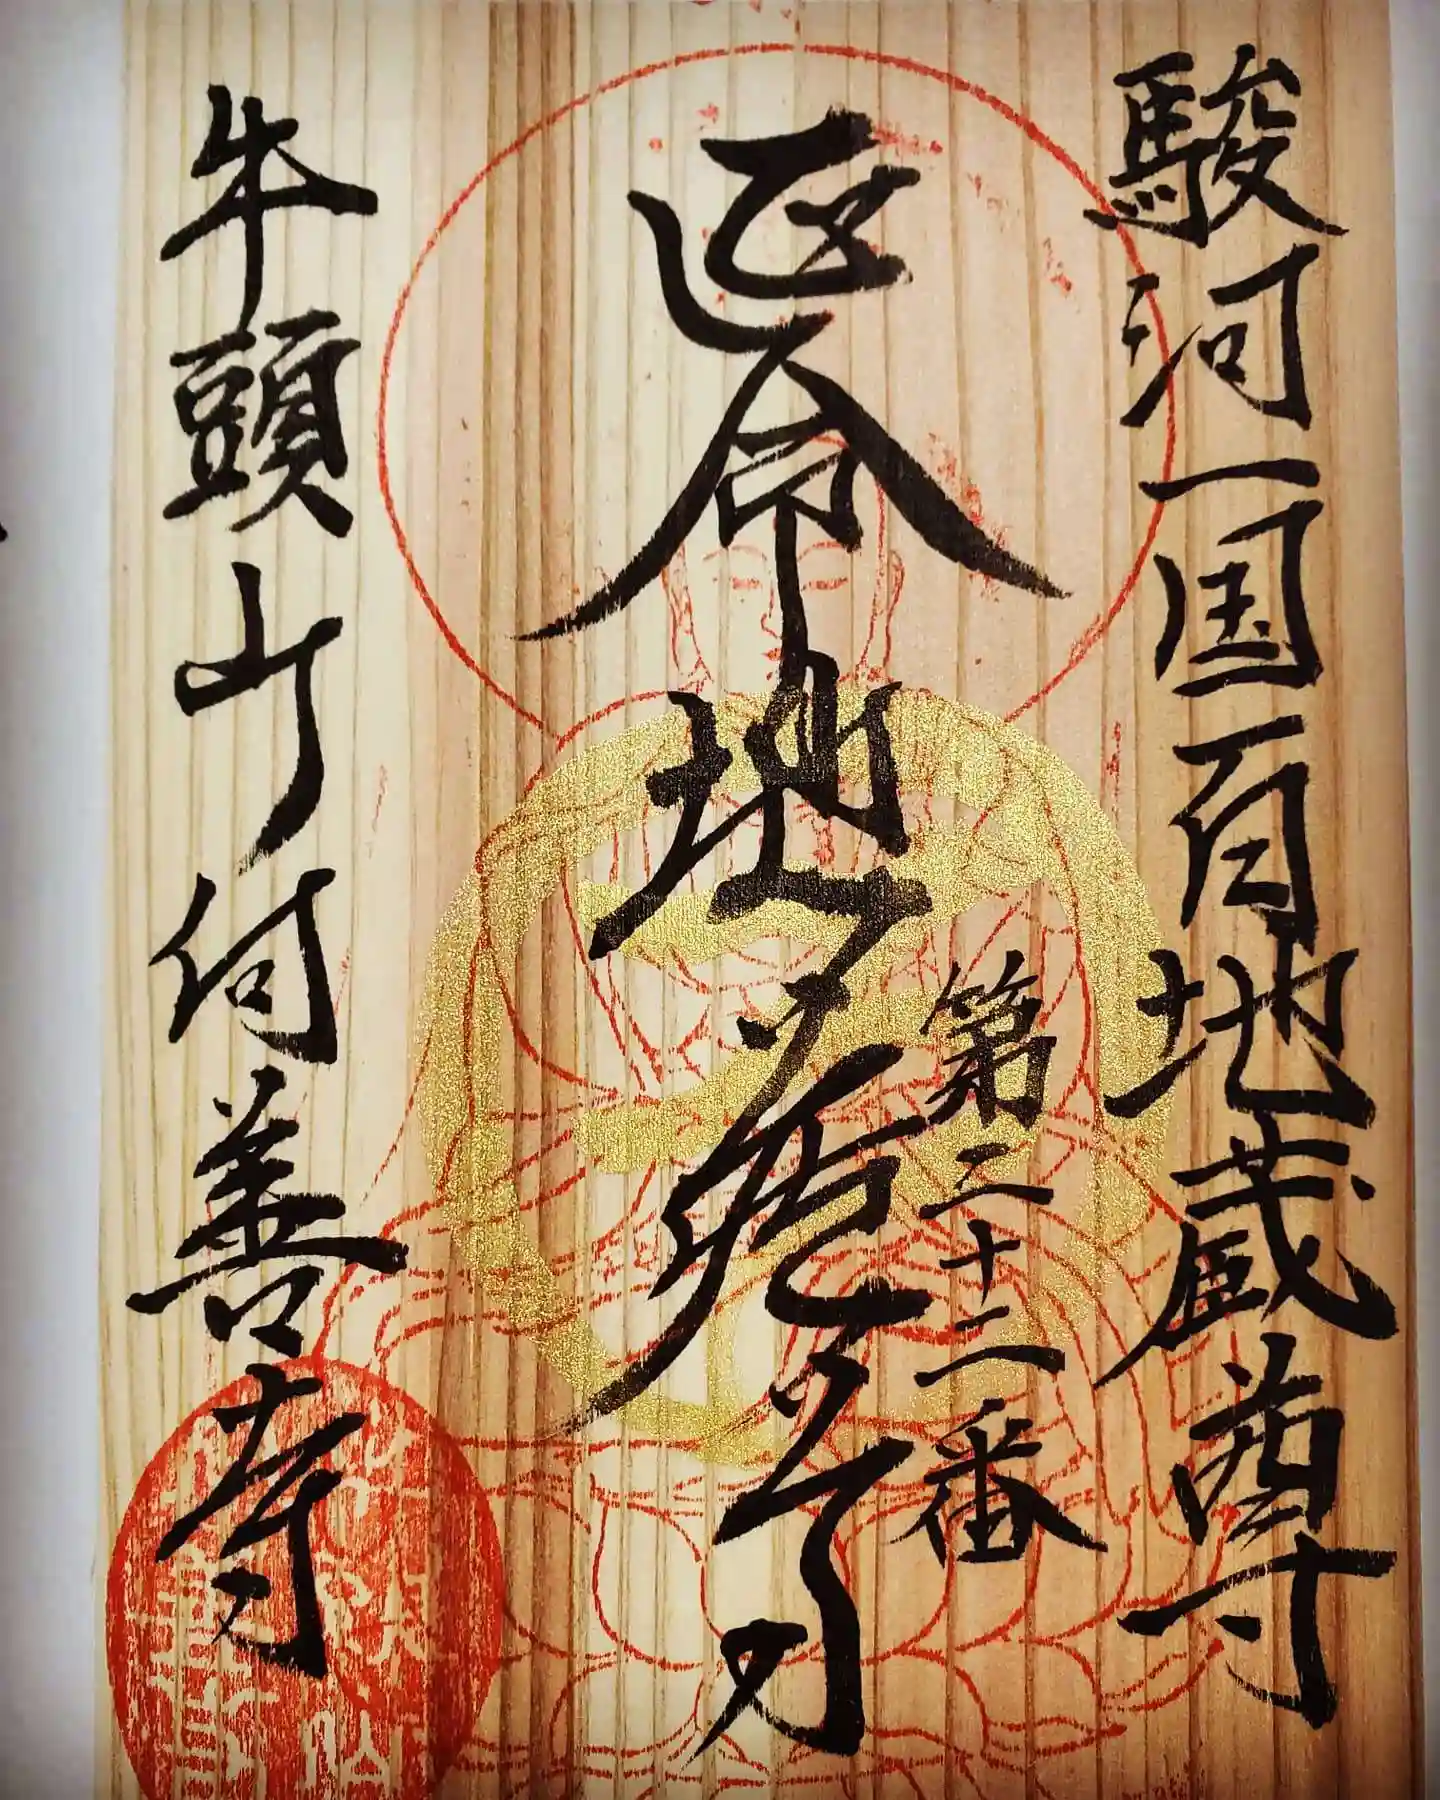 駿河一国百地蔵尊
第三十二番
延命地蔵尊
牛頭山何善寺